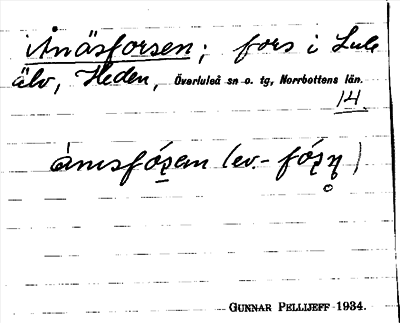 Ånäsforsen; fors i Lule
älv, Heden, Överluleå sn o. tg, Norrbottens län.
14.
(ev.-
GUNNAR PELLIJEFF 1934.